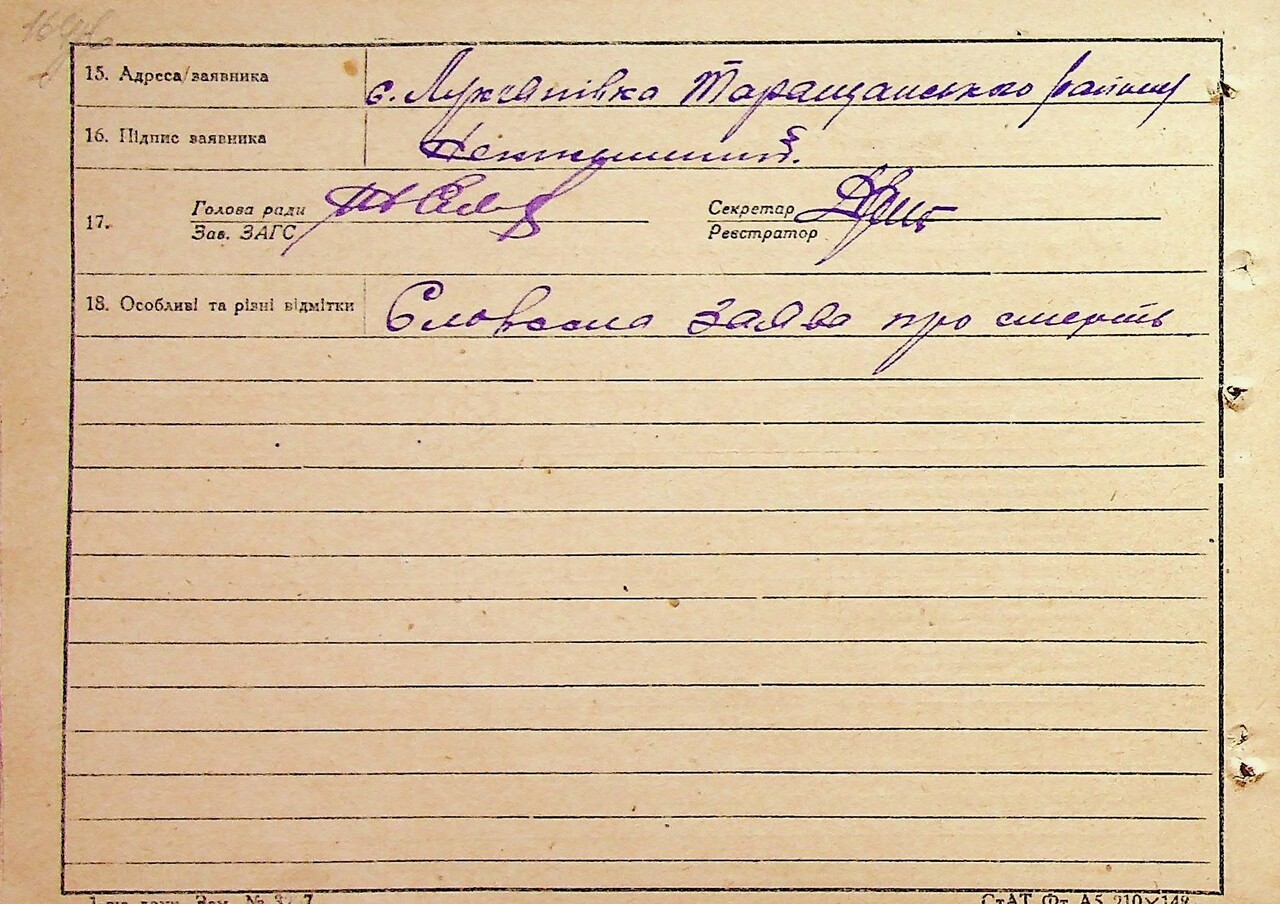 15. Адреса заявника с. Лук'янівка Таращанського району
16. Підпис заявника
17. Голова ради
Зав. ЗАГС
Секретар
Реєстратор
18. Особливі та різні відмітки Словесна заява про смерть
СтАТ. Фт. А5 210×148